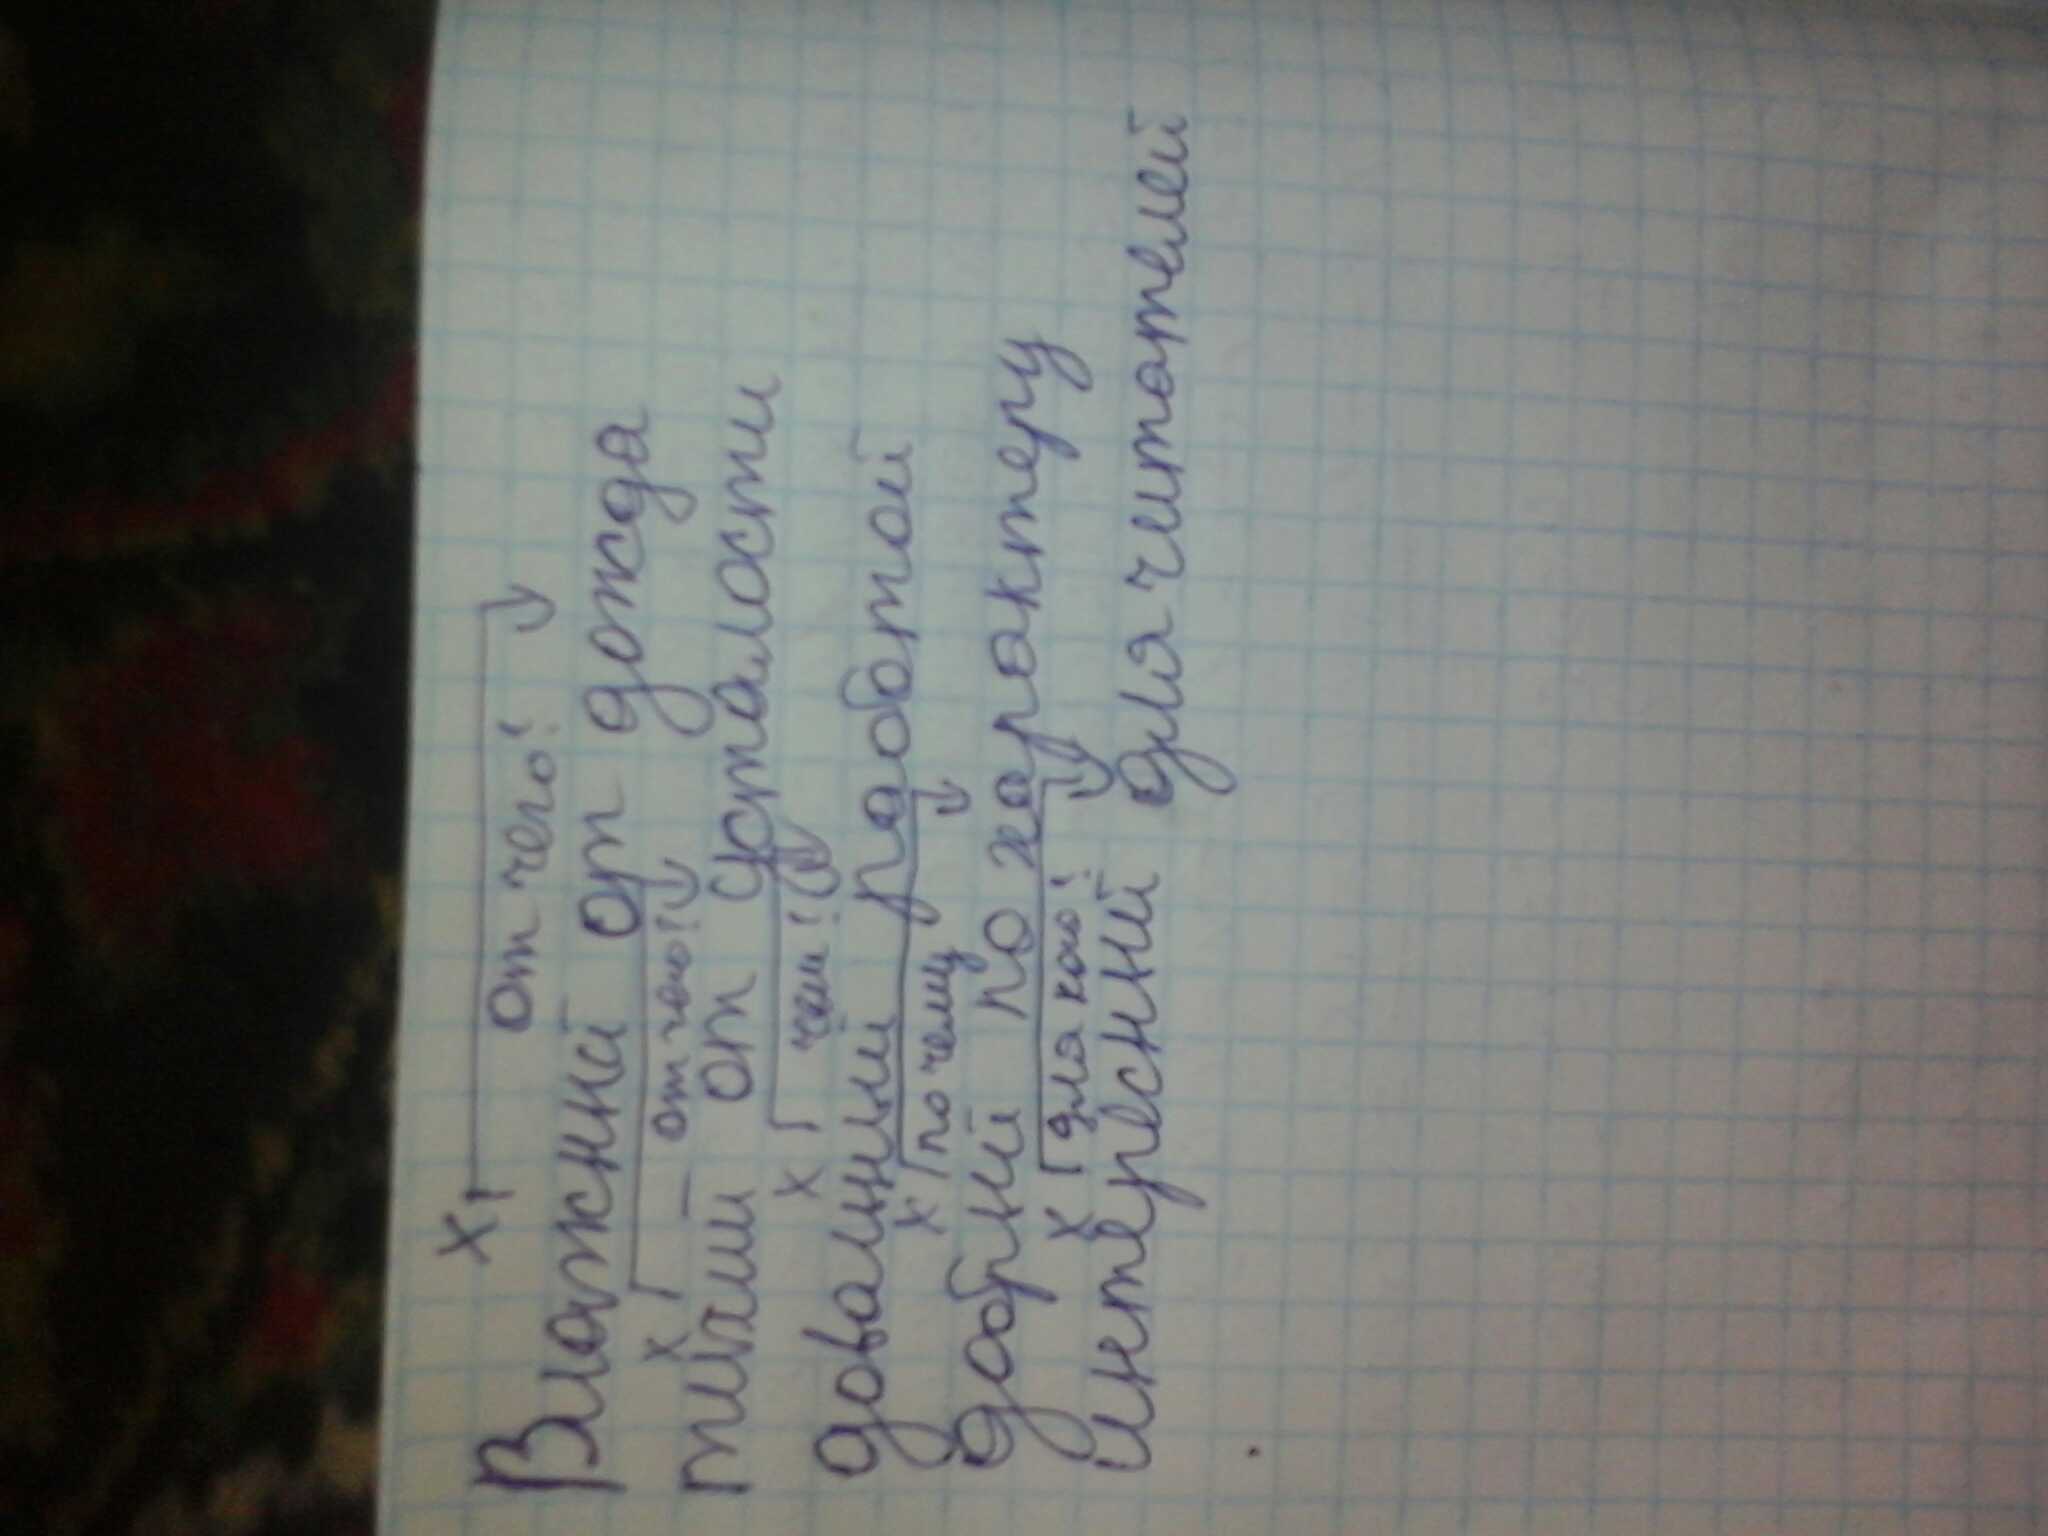 х
от чего?
Влажний от дожда
х от чего?
тихий от усталости
х чем?
довалний работой
х по чему
добрий по характеру
х для кого?
интересний для читателей